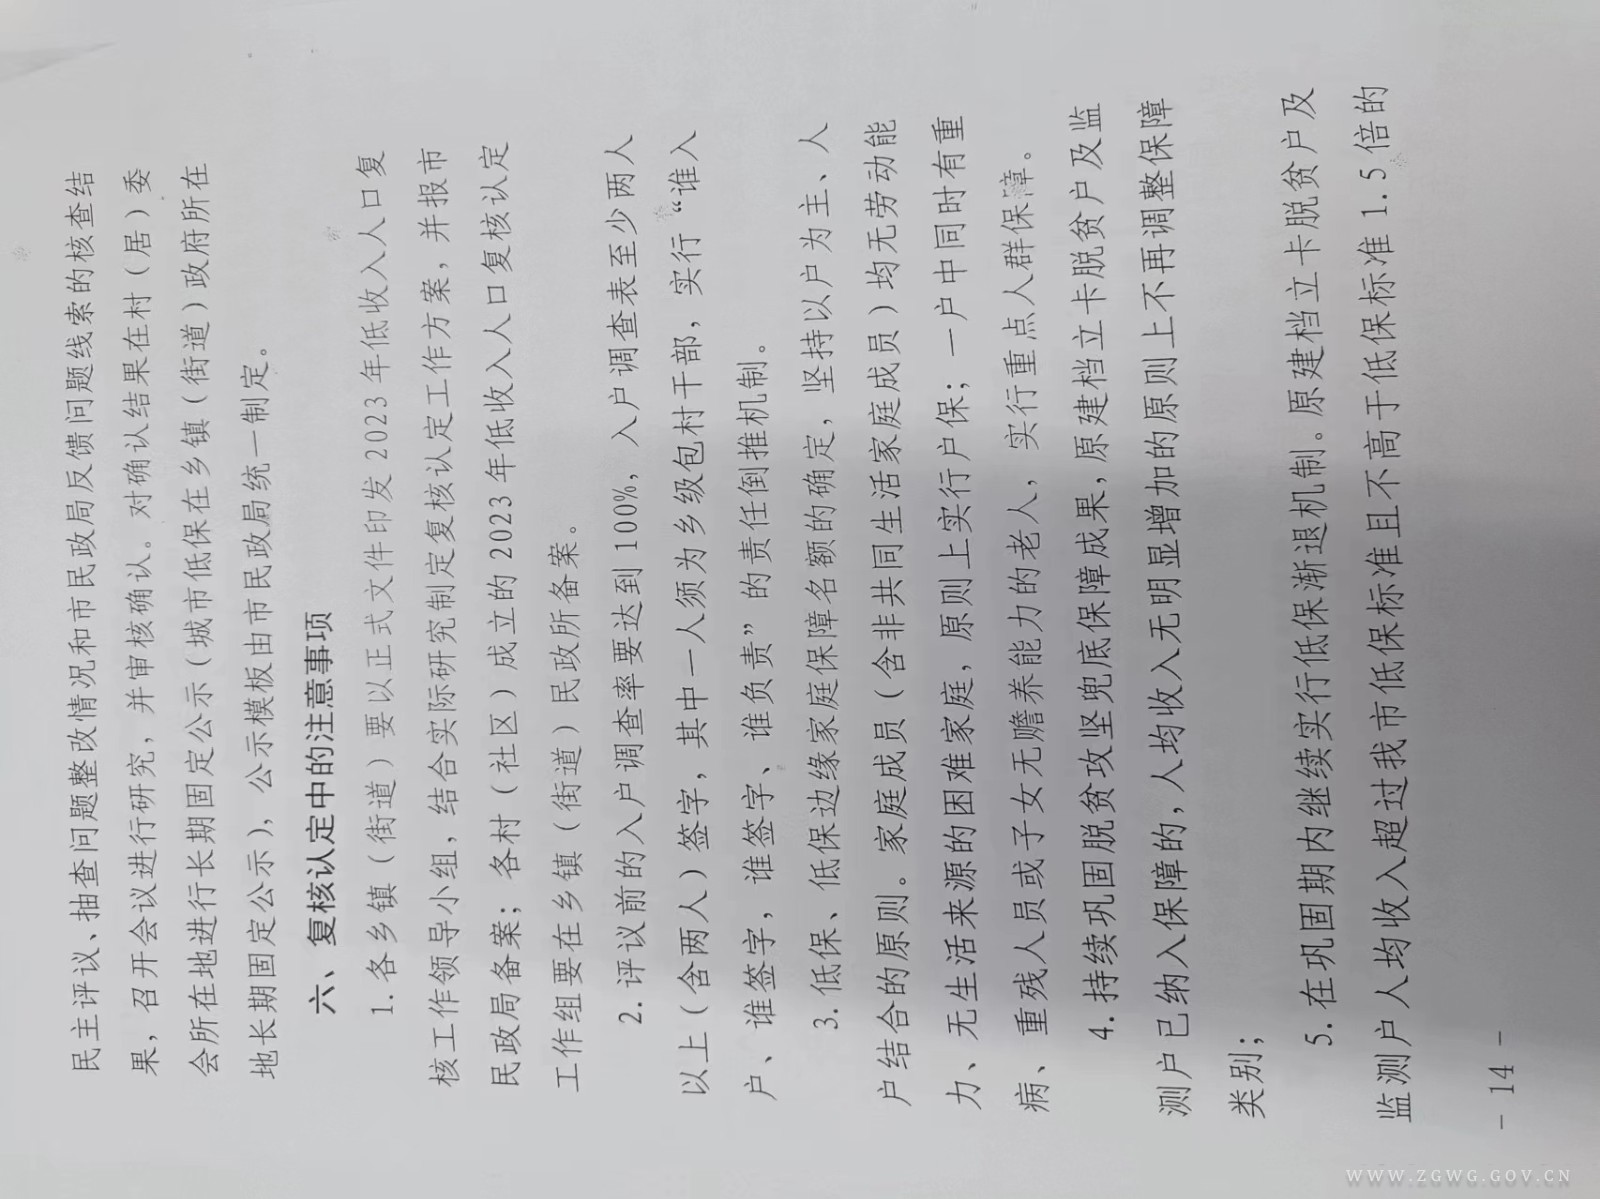 民主评议、抽查问题整改情况和市民政局反馈问题线索的核查结
果，召开会议进行研究，并审核确认。对确认结果在村（居）委
会所在地进行长期固定公示（城市低保在乡镇（街道）政府所在
地长期固定公示），公示模板由市民政局统一制定。
六、复核认定中的注意事项
1.各乡镇（街道）要以正式文件印发2023年低收入人口复
核工作领导小组，结合实际研究制定复核认定工作方案，并报市
民政局备案；各村（社区）成立的2023年低收入人口复核认定
工作组要在乡镇（街道）民政所备案。
2.评议前的入户调查率要达到100%，入户调查表至少两人
以上（含两人）签字，其中一人须为乡级包村干部，实行“谁入
户、谁签字，谁签字、谁负责”的责任倒推机制。
3.低保、低保边缘家庭保障名额的确定，坚持以户为主、人
户结合的原则。家庭成员（含非共同生活家庭成员）均无劳动能
力、无生活来源的困难家庭，原则上实行户保；一户中同时有重
病、重残人员或子女无赡养能力的老人，实行重点人群保障。
4.持续巩固脱贫攻坚兜底保障成果，原建档立卡脱贫户及监
测户已纳入保障的，人均收入无明显增加的原则上不再调整保障
类别；
5.在巩固期内继续实行低保渐退机制。原建档立卡脱贫户及
监测户人均收入超过我市低保标准且不高于低保标准1.5倍的
- 14 -
WWW.ZGWG.GOV.CN